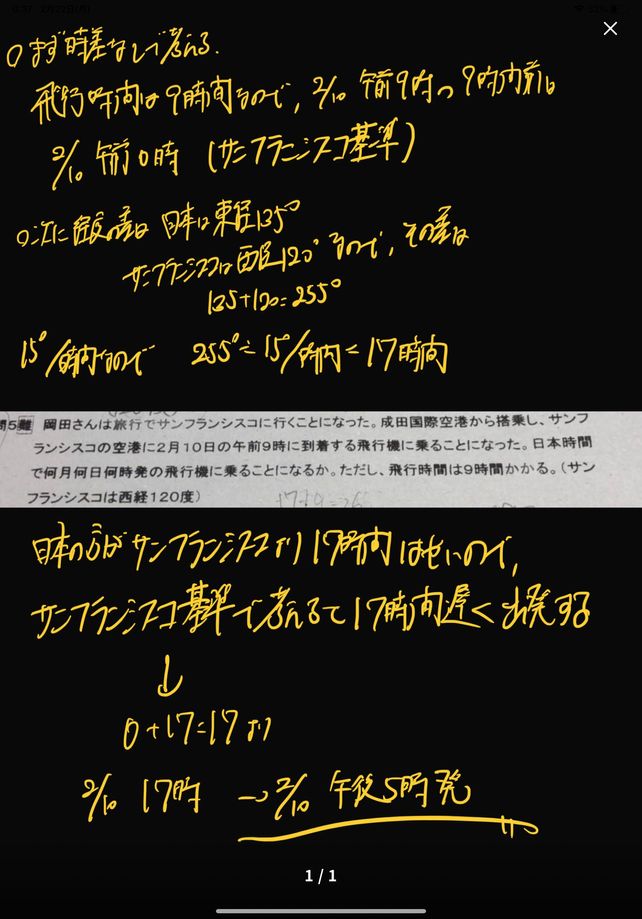 ○まず時差なしで考える.
飛行時間は9時間なので, 2/10 午前9時の9時間前は
2/10 午前0時 (サンフランシスコ基準)
○次に経度の差は 日本は東経135°
サンフランシスコは西経120°なので, その差は
135+120=255°
15°/時間なので 255°÷15/時間=17時間
問5難 岡田さんは旅行でサンフランシスコに行くことになった。成田国際空港から搭乗し、サンフ
ランシスコの空港に2月10日の午前9時に到着する飛行機に乗ることになった。日本時間
で何月何日何時発の飛行機に乗ることになるか。ただし、飛行時間は9時間かかる。(サン
フランシスコは西経120度)
日本の方がサンフランシスコより17時間はやいので,
サンフランシスコ基準で考えると17時間遅く出発する
↓
0+17=17より
2/10 17時 → 2/10 午後5時発
1 / 1